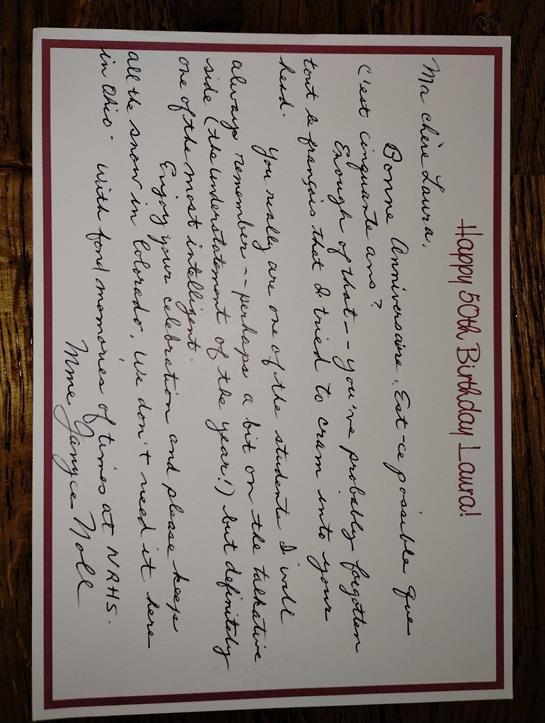 Happy 50th Birthday Laura!
Ma chère Laura,
Bonne Anniversaire. Est-ce possible que
c'est cinquante ans?
Enough of that -- you've probably forgotten
tout le français that I tried to cram into your
head.
You really are one of the students I will
always remember -- perhaps a bit on the talkative
side (the understatement of the year!) but definitely
one of the most intelligent.
Enjoy your celebration and please keep
all the snow in Colorado. We don't need it here
in Ohio. With fond memories of times at NRHS.
Mme Janyce Noll